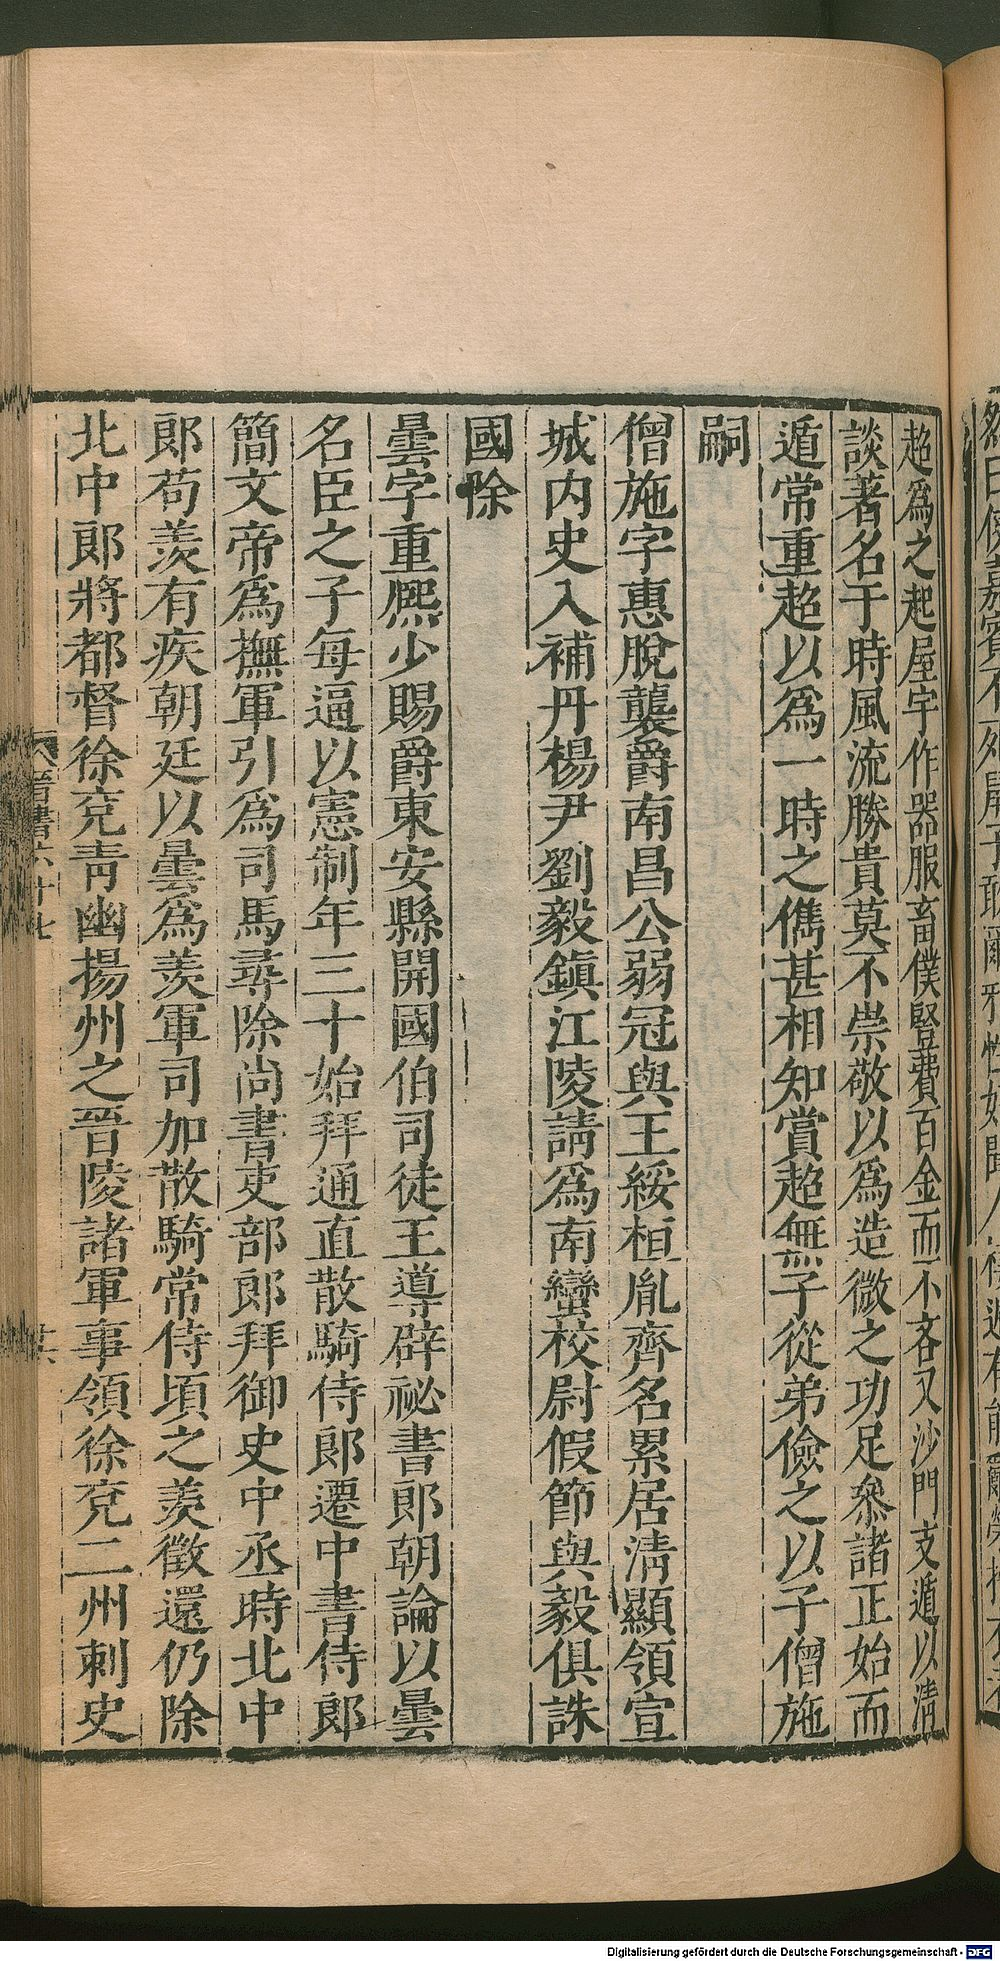 超爲之起屋宇作器服畜僕豎費百金而不吝又沙門支遁以淸
談著名于時風流勝貴莫不崇敬以爲造微之功足參諸正始而
遁常重超以爲一時之儁甚相知賞超無子從弟儉之以子僧施
嗣
僧施字惠脫襲爵南昌公弱冠與王綏桓胤齊名累居淸顯領宣
城內史入補丹楊尹劉毅鎭江陵請爲南蠻校尉假節與毅俱誅
國除
曇字重熈少賜爵東安縣開國伯司徒王導辟祕書郎朝論以曇
名臣之子每逼以憲制年三十始拜通直散騎侍郎遷中書侍郎
簡文帝爲撫軍引爲司馬尋除尚書吏部郎拜御史中丞時北中
郎荀羨有疾朝廷以曇爲羨軍司加散騎常侍頃之羨徵還仍除
北中郎將都督徐兗靑幽揚州之晉陵諸軍事領徐兗二州刺史
晉書六十七
Digitalisierung gefördert durch die Deutsche Forschungsgemeinschaft - DFG